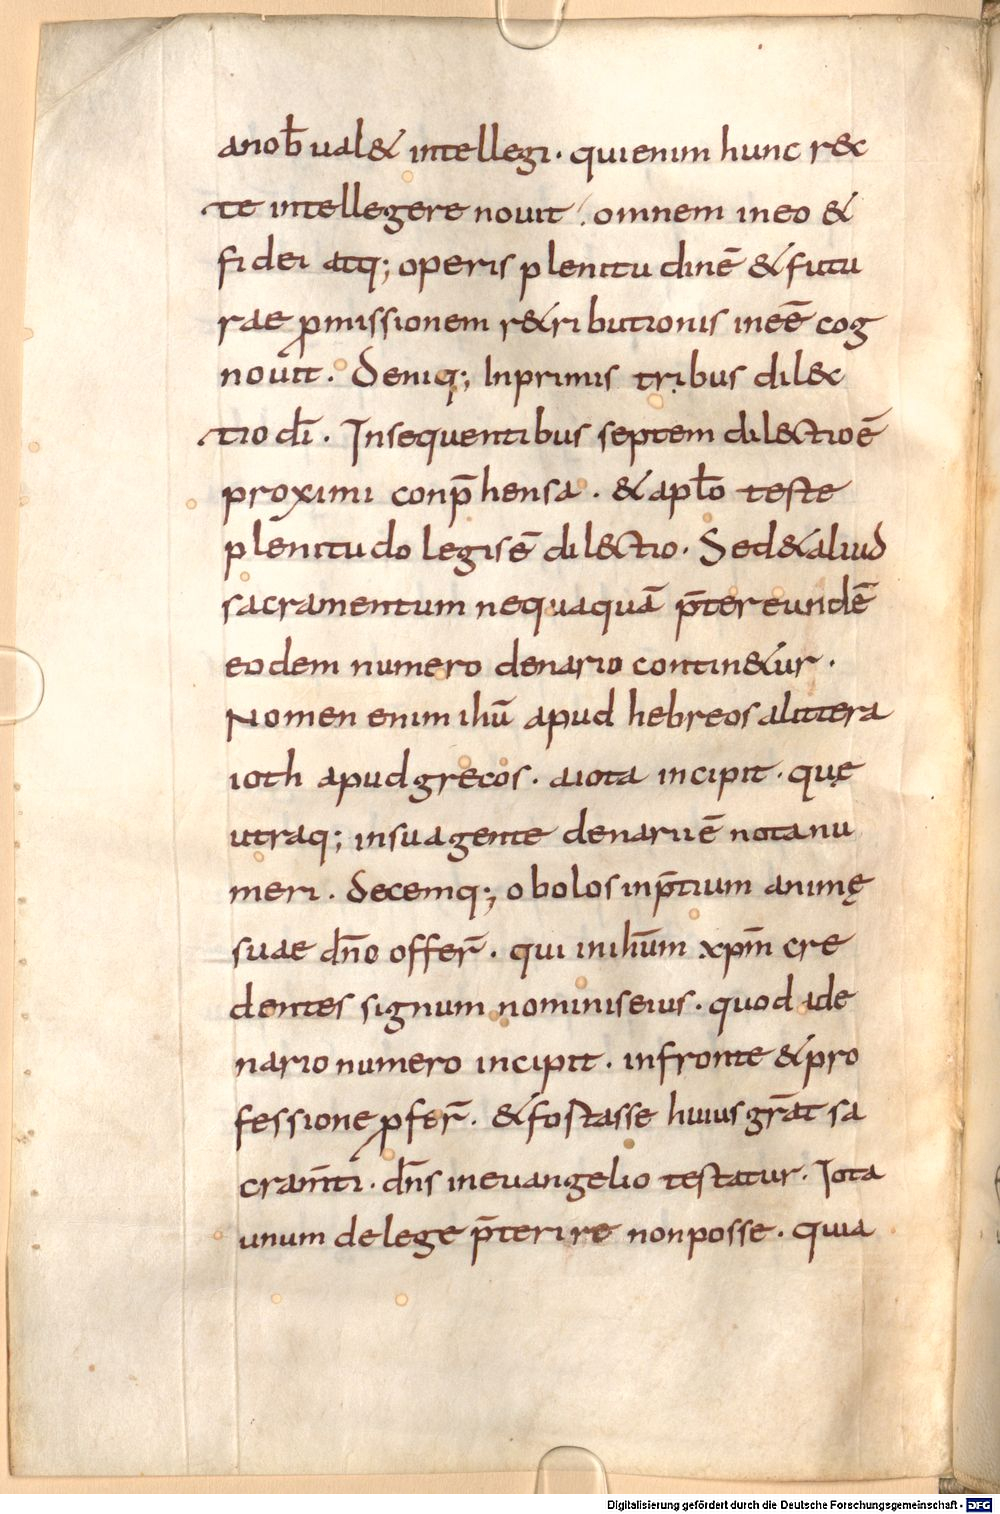 anob̄ ual& intellegi· qui enim hunc r&c
te intellegere nouit / omnem in eo &
fidei atq; operis plenitudinē & futu
rae ꝓmissionem r&ributionis ineē cog
nouit· Deniq; Inprimis tribus dil&c
tio dī· Insequentibus septem dil&ctio ē
proximi conp̄hensa· & apl̄o teste
plenitudo legis ē dil&ctio· Sed & aliud
sacramentum nequaquā p̄tereundē
eodem numero denario contin&ur·
Nomen enim ihū apud hebreos a littera
ioth apud grecos· a iota incipit· quę
utraq; in sua gente denarii ē nota nu
meri· decemq; obolos in p̄tium animę
suae dn̄o offer̄· qui in ihm̄ xpm̄ cre
dentes signum nominis eius· quod a de
nario numero incipit· in fronte & pro
fessione ꝓfer̄· & fostasse huius gr̄at sa
cram̄ti· dn̄s in euangelio testatur· Iota
unum de lege p̄terire non posse· quia
Digitalisierung gefördert durch die Deutsche Forschungsgemeinschaft - DFG